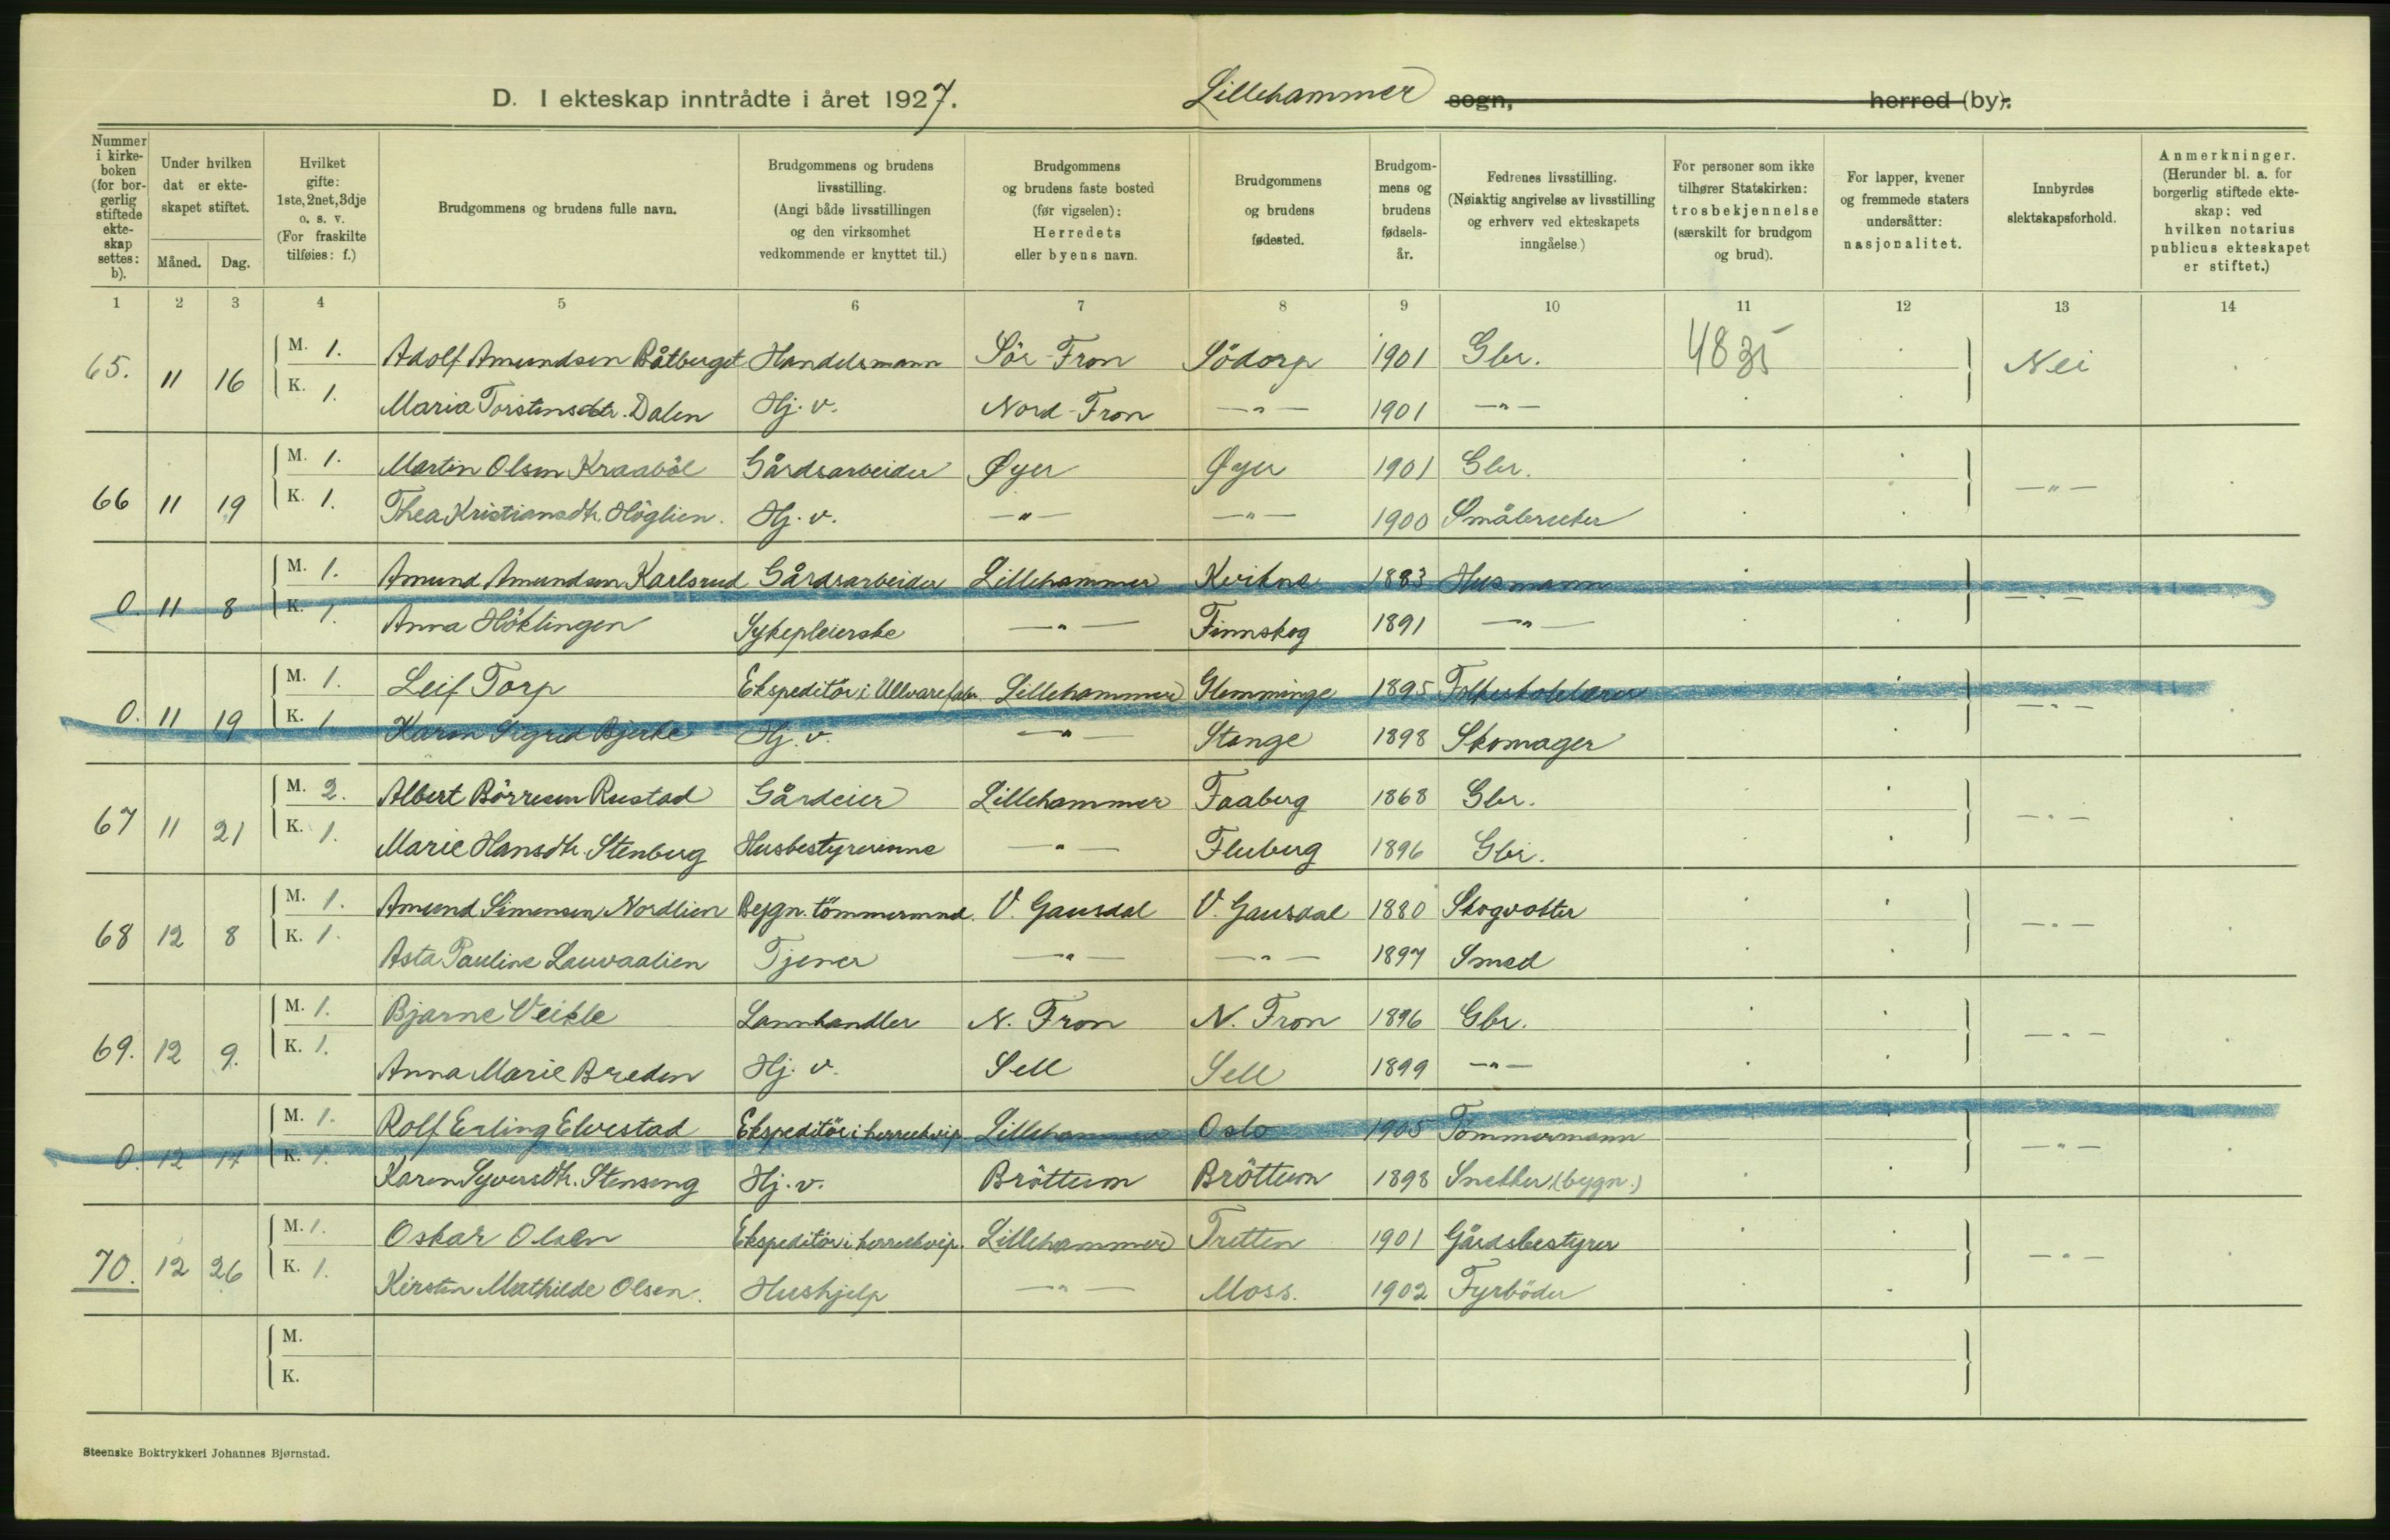 D. I ekteskap inntrådte i året 1927. Lillehammer sogn, herred (by).
Nummer i kirkeboken (for borgerlig stiftede ekteskap settes: b).
Under hvilken dat er ekteskapet stiftet.
Måned. Dag.
Hvilket gifte: 1ste, 2net, 3dje o. s. v. (For fraskilte tilføies: f.)
Brudgommens og brudens fulle navn.
Brudgommens og brudens livsstilling. (Angi både livsstillingen og den virksomhet vedkommende er knyttet til.)
Brudgommens og brudens faste bosted (før vigselen): Herredets eller byens navn.
Brudgommens og brudens fødested.
Brudgommens og brudens fødselsår.
Fedrenes livsstilling. (Nøiaktig angivelse av livsstilling og erhverv ved ekteskapets inngåelse.)
For personer som ikke tilhører Statskirken: trosbekjennelse (særskilt for brudgom og brud).
For lapper, kvener og fremmede staters undersåtter: nasjonalitet.
Innbyrdes slektskapsforhold.
Anmerkninger. (Herunder bl. a. for borgerlig stiftede ekteskap; ved hvilken notarius publicus ekteskapet er stiftet.)
1 2 3 4 5 6 7 8 9 10 11 12 13 14
65. 11 16 M. 1. Adolf Amundsen Båtberget Handelsmann Sör-Fron Södorp 1901 Gbr. 4835 Nei
K. 1. Maria Torstensdtr. Dalen Hj. v. Nord-Fron —"— 1901 —"—
66 11 19 M. 1. Martin Olsen Kraaböl Gårdsarbeider Øyer Øyer 1901 Gbr. —"—
K. 1. Thea Kristiansdtr. Höglien. Hj. v. —"— —"— 1900 Småbruker
0. 11 8 M. 1. Amund Amundsen Karlsrud Gårdsarbeider Lillehammer Kvikne 1883 Husmann —"—
K. 1. Anna Höklingen Sykepleierske —"— Finnskog 1891 —"—
0. 11 19 M. 1. Leif Torp Ekspeditör i Ullvarefabr. Lillehammer Glemminge 1895 Folkeskolelærer —"—
K. 1. Karen Sigrid Bjerke Hj. v. —"— Stange 1898 Skomager
67 11 21 M. 2. Albert Börresen Rustad Gårdeier Lillehammer Faaberg 1868 Gbr. —"—
K. 1. Marie Hansdtr. Stenberg Husbestyrerinne —"— Fluberg 1896 Gbr.
68 12 8 M. 1. Amund Simensen Nordlien Bygn. tömmermnd. V. Gausdal V. Gausdal 1880 Skogvokter —"—
K. 1. Asta Pauline Lauvaalien Tjener —"— —"— 1897 Smed
69. 12 9. M. 1. Bjarne Veikle Lannhandler N. Fron N. Fron 1896 Gbr. —"—
K. 1. Anna Marie Breden Hj. v. Sell Sell 1899 —"—
0. 12 14 M. 1. Rolf Erling Elvestad Ekspeditör i herreekvip. Lillehammer Oslo 1905 Tömmermann —"—
K. 1. Karen Syversdtr. Stenseng Hj. v. Bröttum Bröttum 1898 Snekker (bygn.)
70. 12 26 M. 1. Oskar Olsen Ekspeditör i herreekvip. Lillehammer Tretten 1901 Gårdsbestyrer —"—
K. 1. Kirsten Mathilde Olsen. Hushjelp —"— Moss. 1902 Fyrböder
M.
K.
Steenske Boktrykkeri Johannes Bjørnstad.